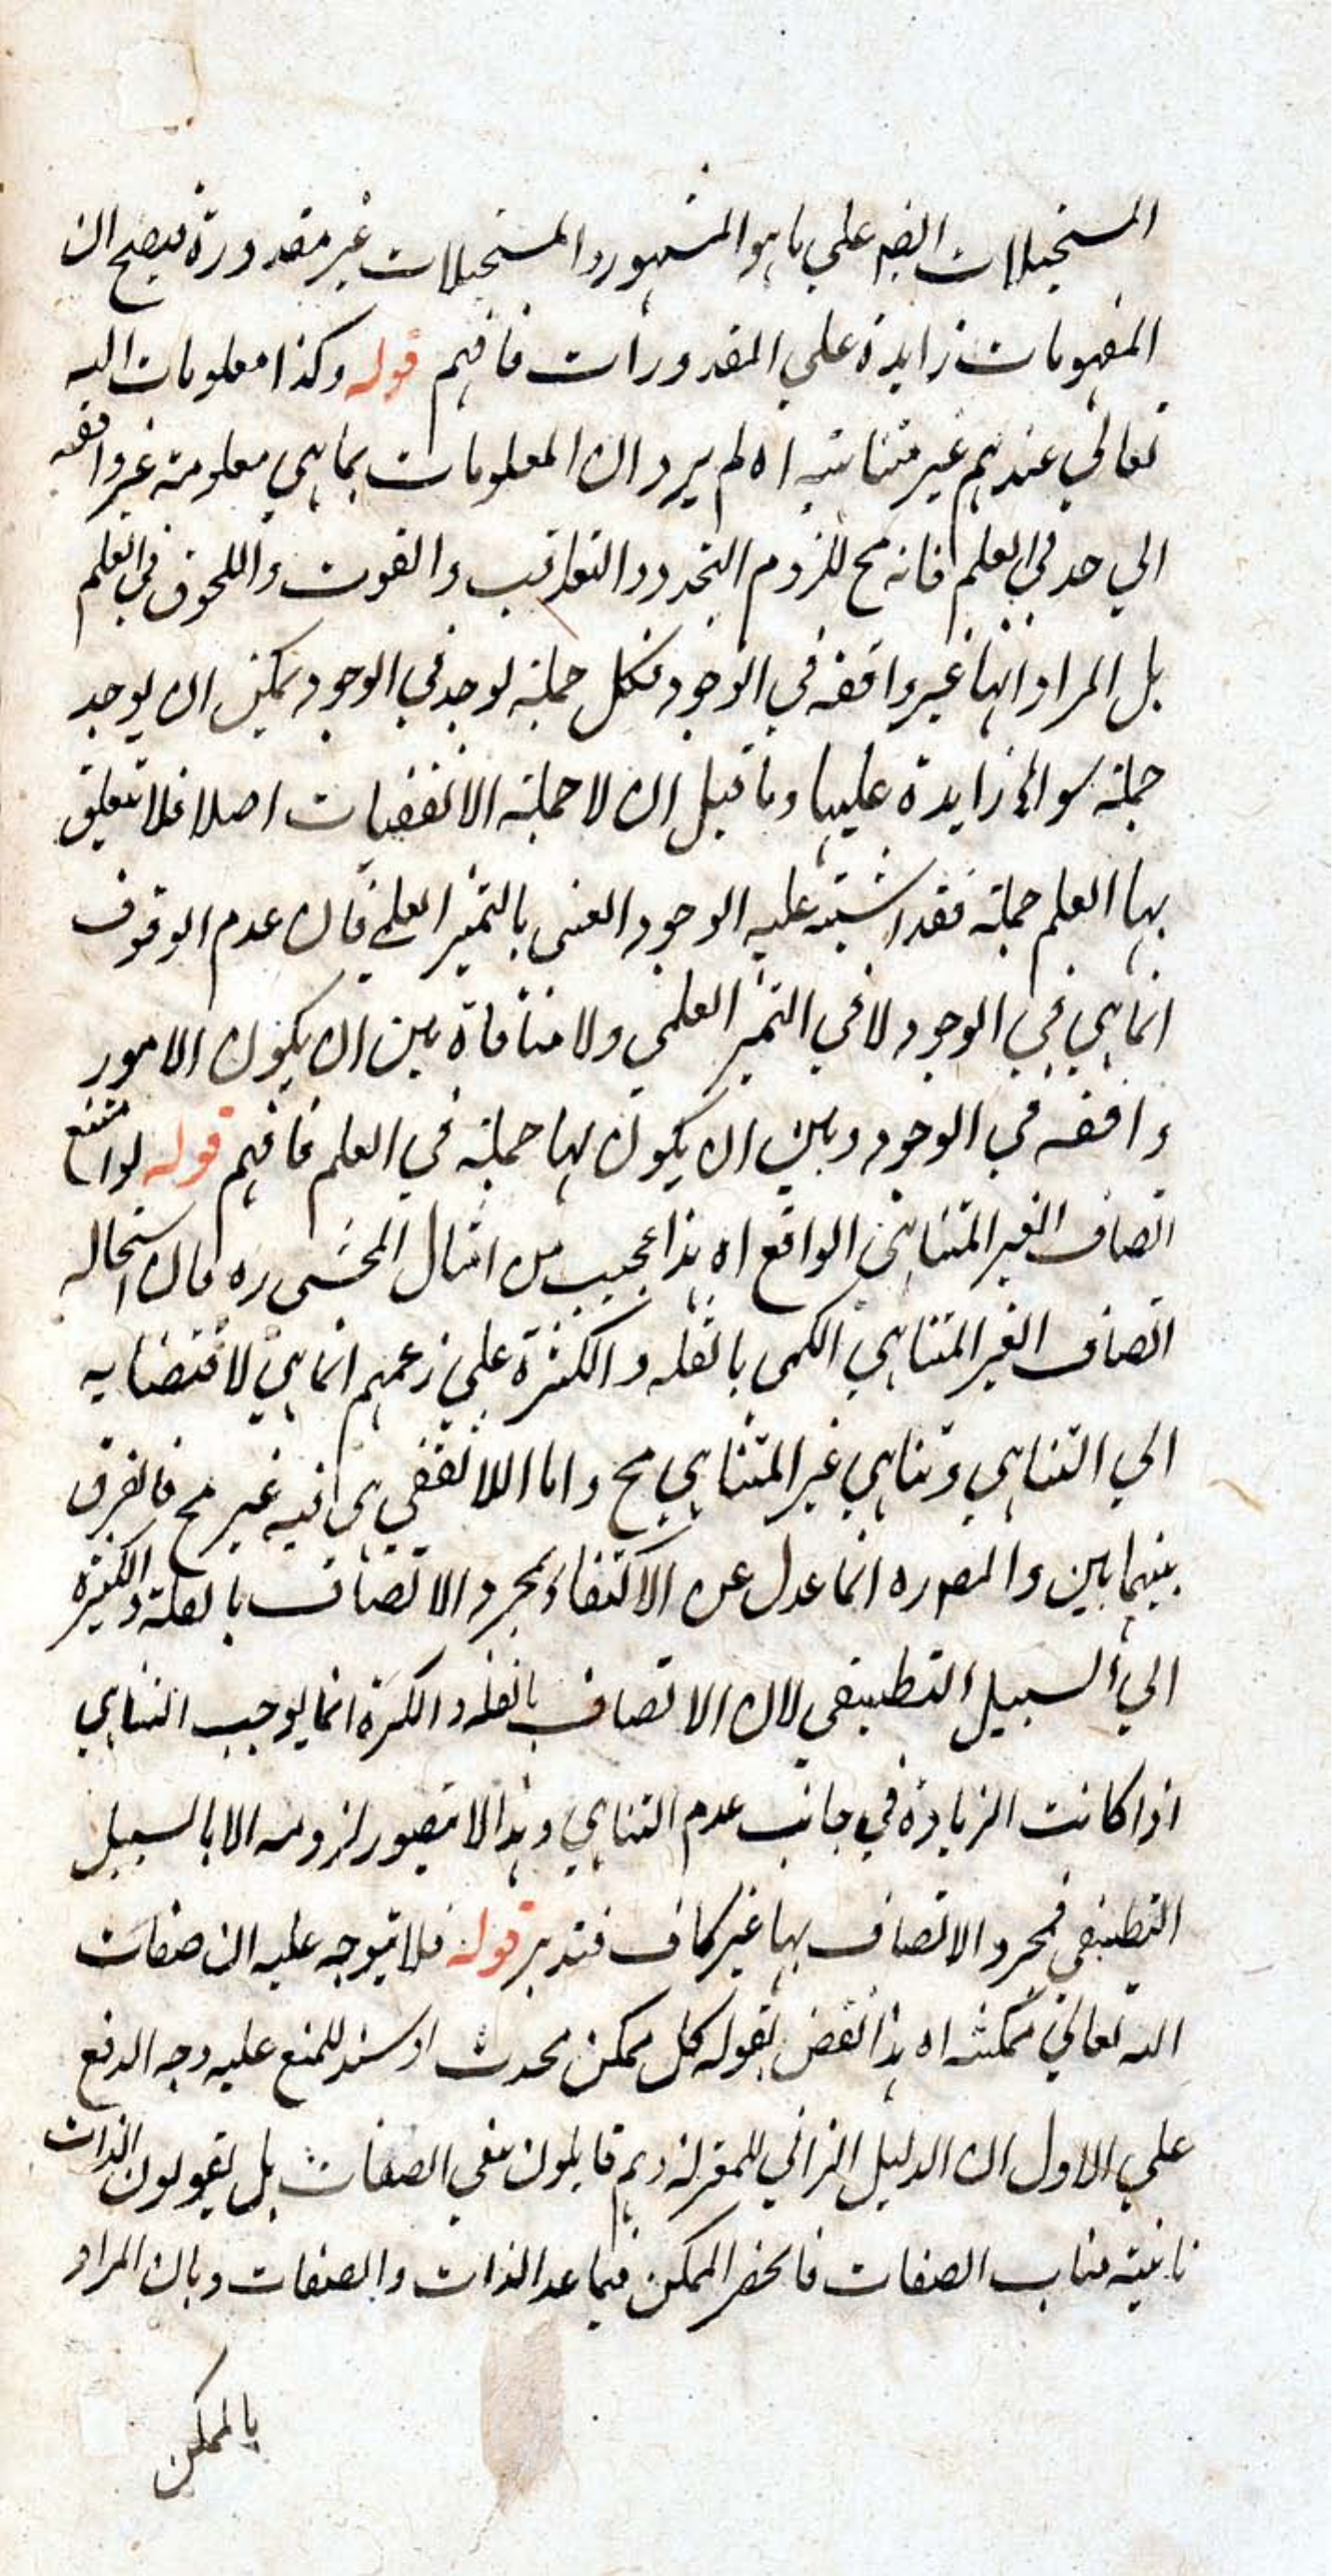 المستحيلات ايضه علي ما هو المشهور والمستحيلات غير مقدورة فيصح ان
المفهومات زايدة علي المقدورات فافهم قوله وكذا معلومات الله
تعالي عندهم غير متناهية اه لم يرد ان المعلومات بما هي معلومة غير واقفه
الي حد في العلم فانه مح للزوم التجدد والتعاقب والفوت واللحوق في العلم
بل المراد انها غير واقفه في الوجود فكل جملة توجد في الوجود يمكن ان يوجد
جملة سوائ زايدة عليها وما قيل ان لا جملة الا تقفيات اصلا فلا تتعلق
بها العلم جملة فقد اشتبه عليه الوجود العيني بالتميز العلمي فان عدم الوقوف
انما هي في الوجود لا في التميز العلمي ولا منافاة بين ان يكون الامور
واقفه في الوجود وبين ان يكون لها جملة في العلم فافهم قوله لو امتنع
اتصاف الغير المتناهي الواقع اه هذا عجيب من امثال المحشي ره فان استحاله
اتصاف الغير المتناهي الكمي بالقله والكثرة علي زعمهم انما هي لاقتضايه
الي التناهي وتناهي غير المتناهي مح واما اللا تقفي فيه غير مح فالفرق
بينهما بين والمصوره انما عدل عن الاكتفاء بمجرد الاتصاف بالقلة والكثرة
الي السبيل التطبيقي لان الاتصاف بالقله والكثرة انما يوجب التناهي
اذا كانت الزيادة في جانب عدم التناهي وهذا لا يتصور لزومه الا بالسبيل
التطبيقي فمجرد الاتصاف بها غير كاف فتدبر قوله فلا يتوجه عليه ان صفات
الله تعالي ممكنه اه هذا نقض لقوله كل ممكن محدث او سند للمنع عليه وجه الدفع
علي الاول ان الدليل الزاني للمعتزلة وهم قايلون بنفي الصفات بل يقولون الذات
نايبة مناب الصفات فانحصر الممكن فيما عدا الذات والصفات وبان المراد
بالممكن